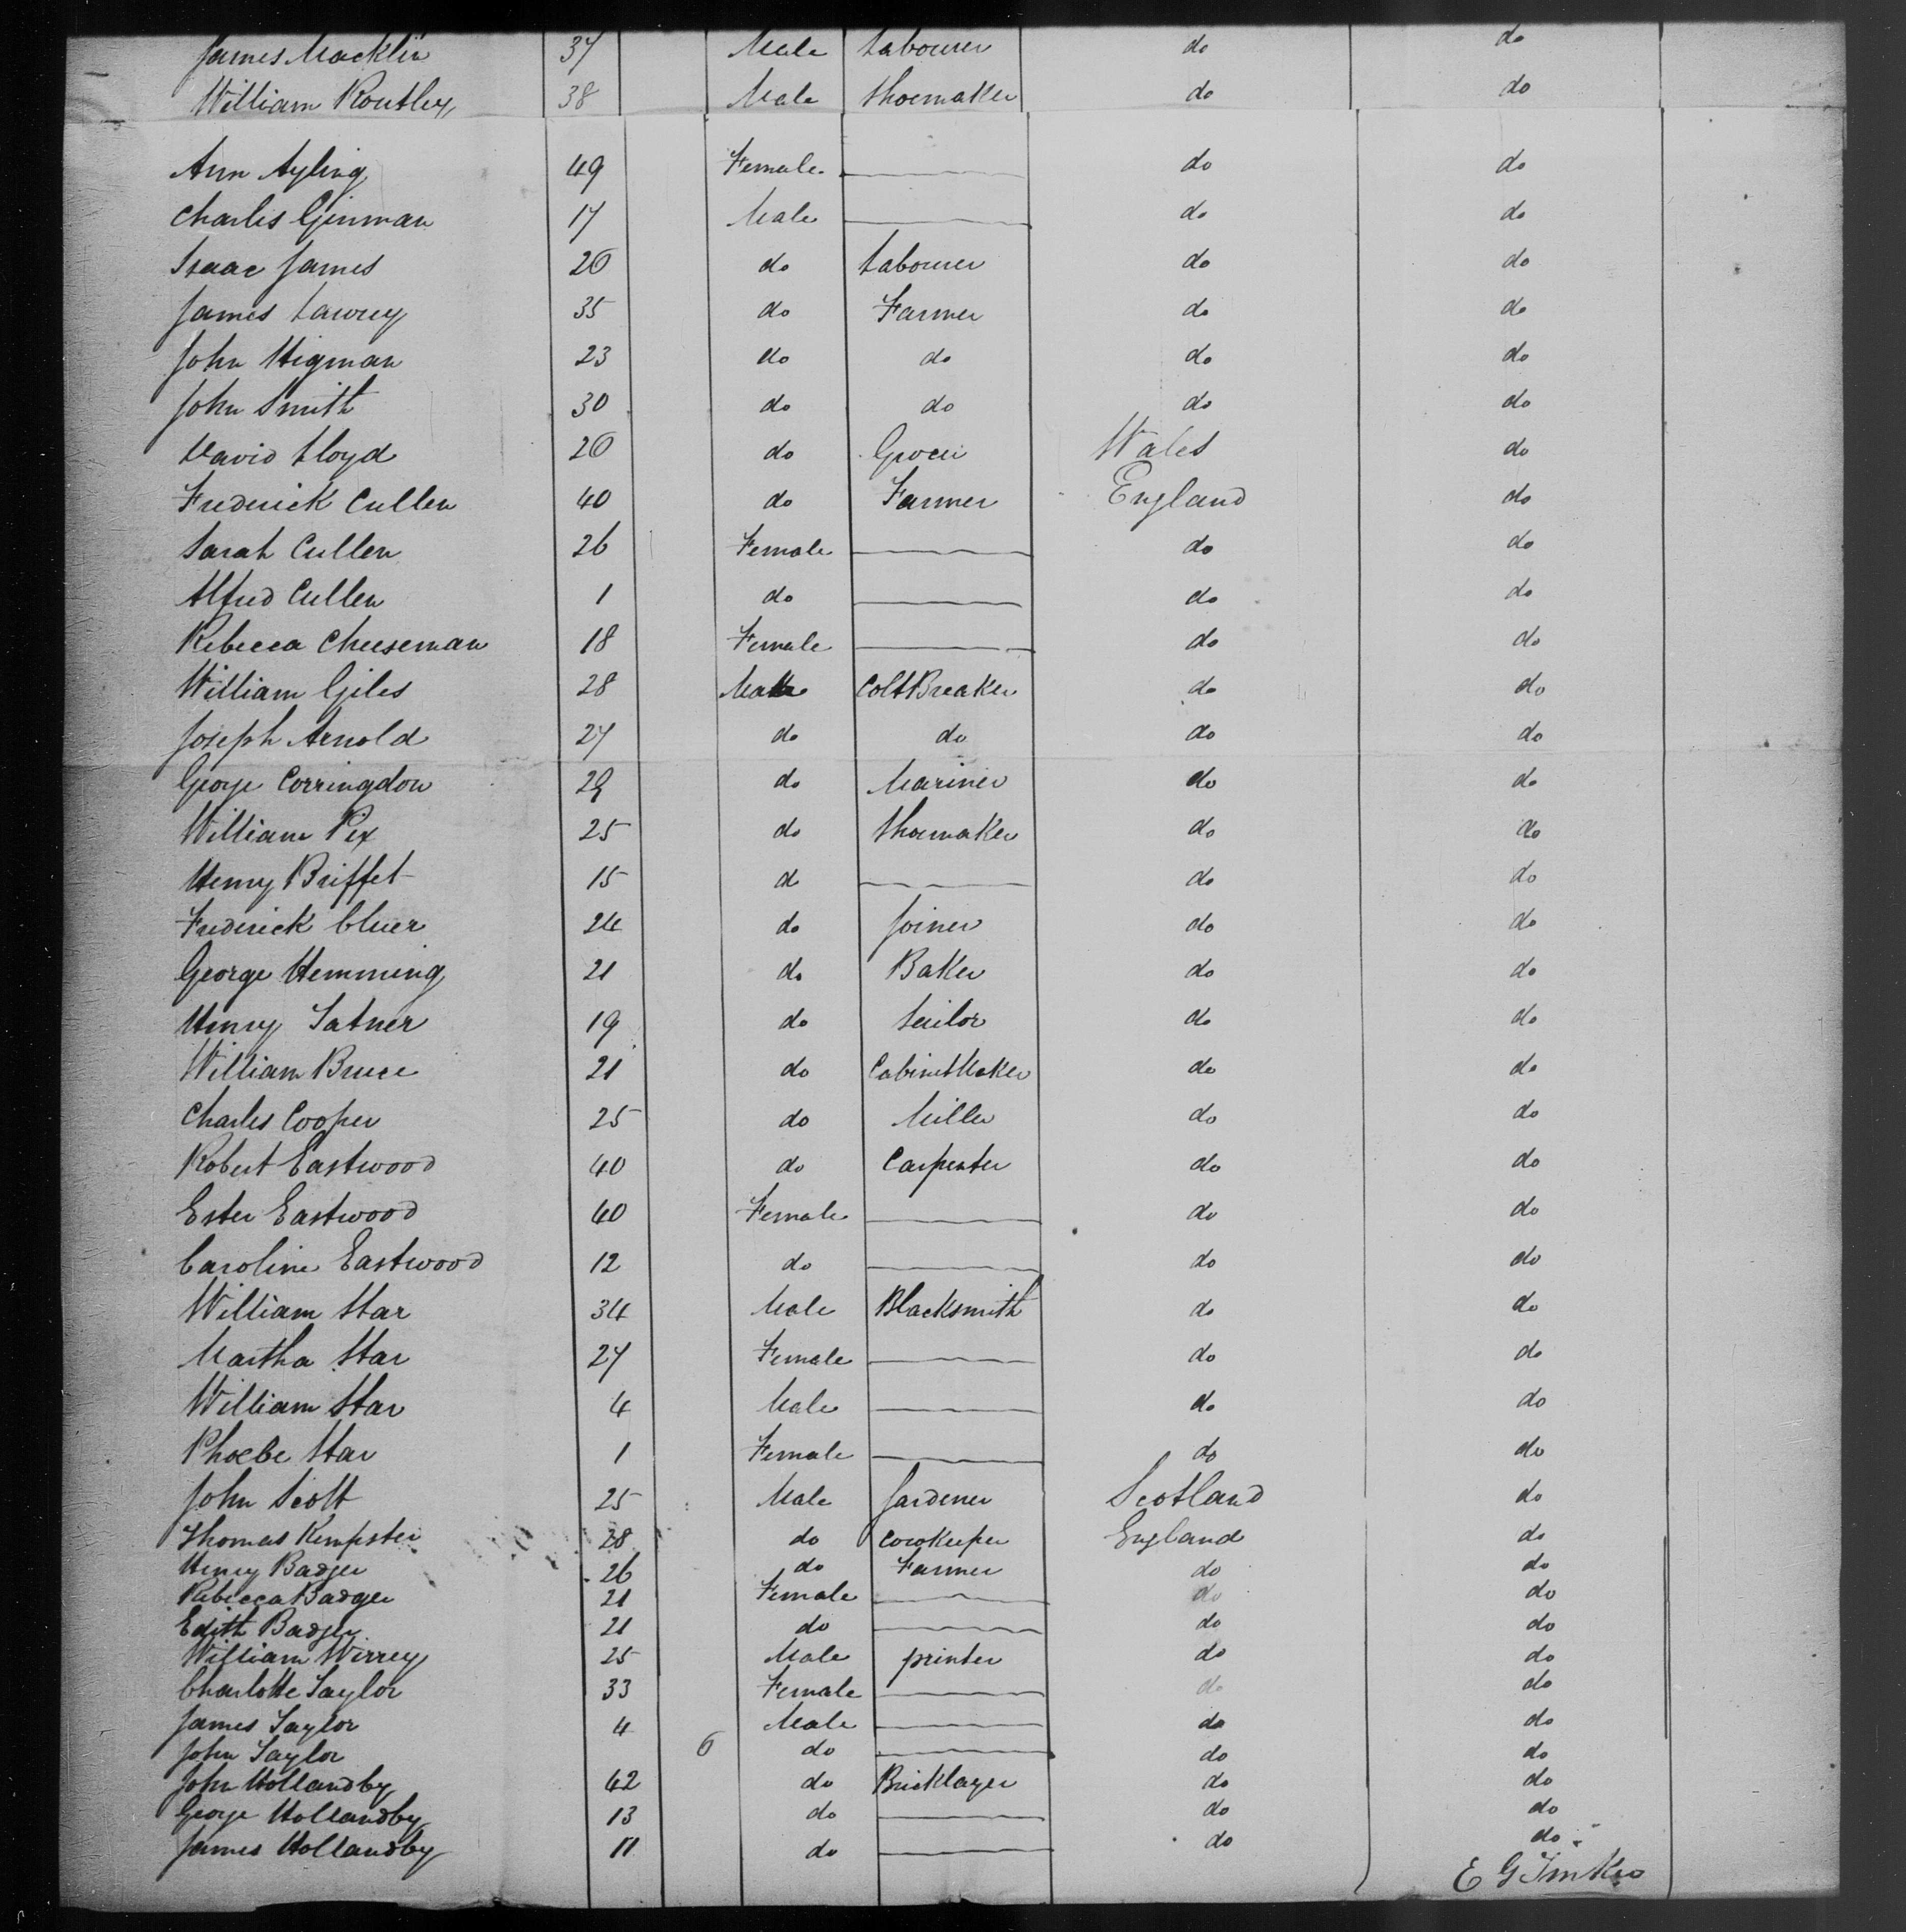 James Macklin 37 Male Labourer do do
William Routley 38 Male Shoemaker do do
Ann Ayling 49 Female do do
Charles Ginman 17 Male do do
Isaac James 20 do Labourer do do
James Lawrey 35 do Farmer do do
John Higman 23 do do do do
John Smith 30 do do do do
David Lloyd 20 do Grocer Wales do
Frederick Cullen 40 do Farmer England do
Sarah Cullen 26 Female do do
Alfred Cullen 1 do do do
Rebecca Cheeseman 18 Female do do
William Giles 28 Male Colt Breaker do do
Joseph Arnold 27 do do do do
George Corringdon 29 do Mariner do do
William Pex 25 do Shoemaker do do
Henry Briffet 15 d do do
Frederick Cluer 24 do Joiner do do
George Hemming 21 do Baker do do
Henry Tatner 19 do Sailor do do
William Bruce 21 do Cabinet Maker do do
Charles Cooper 25 do Miller do do
Robert Eastwood 40 do Carpenter do do
Ester Eastwood 40 Female do do
Caroline Eastwood 12 do do do
William Star 34 Male Blacksmith do do
Martha Star 27 Female do do
William Star 4 Male do do
Phoebe Star 1 Female do do
John Scott 25 Male Gardener Scotland do
Thomas Kempster 28 do Cowkeeper England do
Henry Badger 26 do Farmer do do
Rebecca Badger 21 Female do do
Edith Badger 21 do do do
William Wirrey 25 Male printer do do
Charlotte Taylor 33 Female do do
James Taylor 4 Male do do
John Taylor 6 do do do
John Hollandby 42 do Bricklayer do do
George Hollandby 13 do do do
James Hollandby 11 do do do
E G Tinker